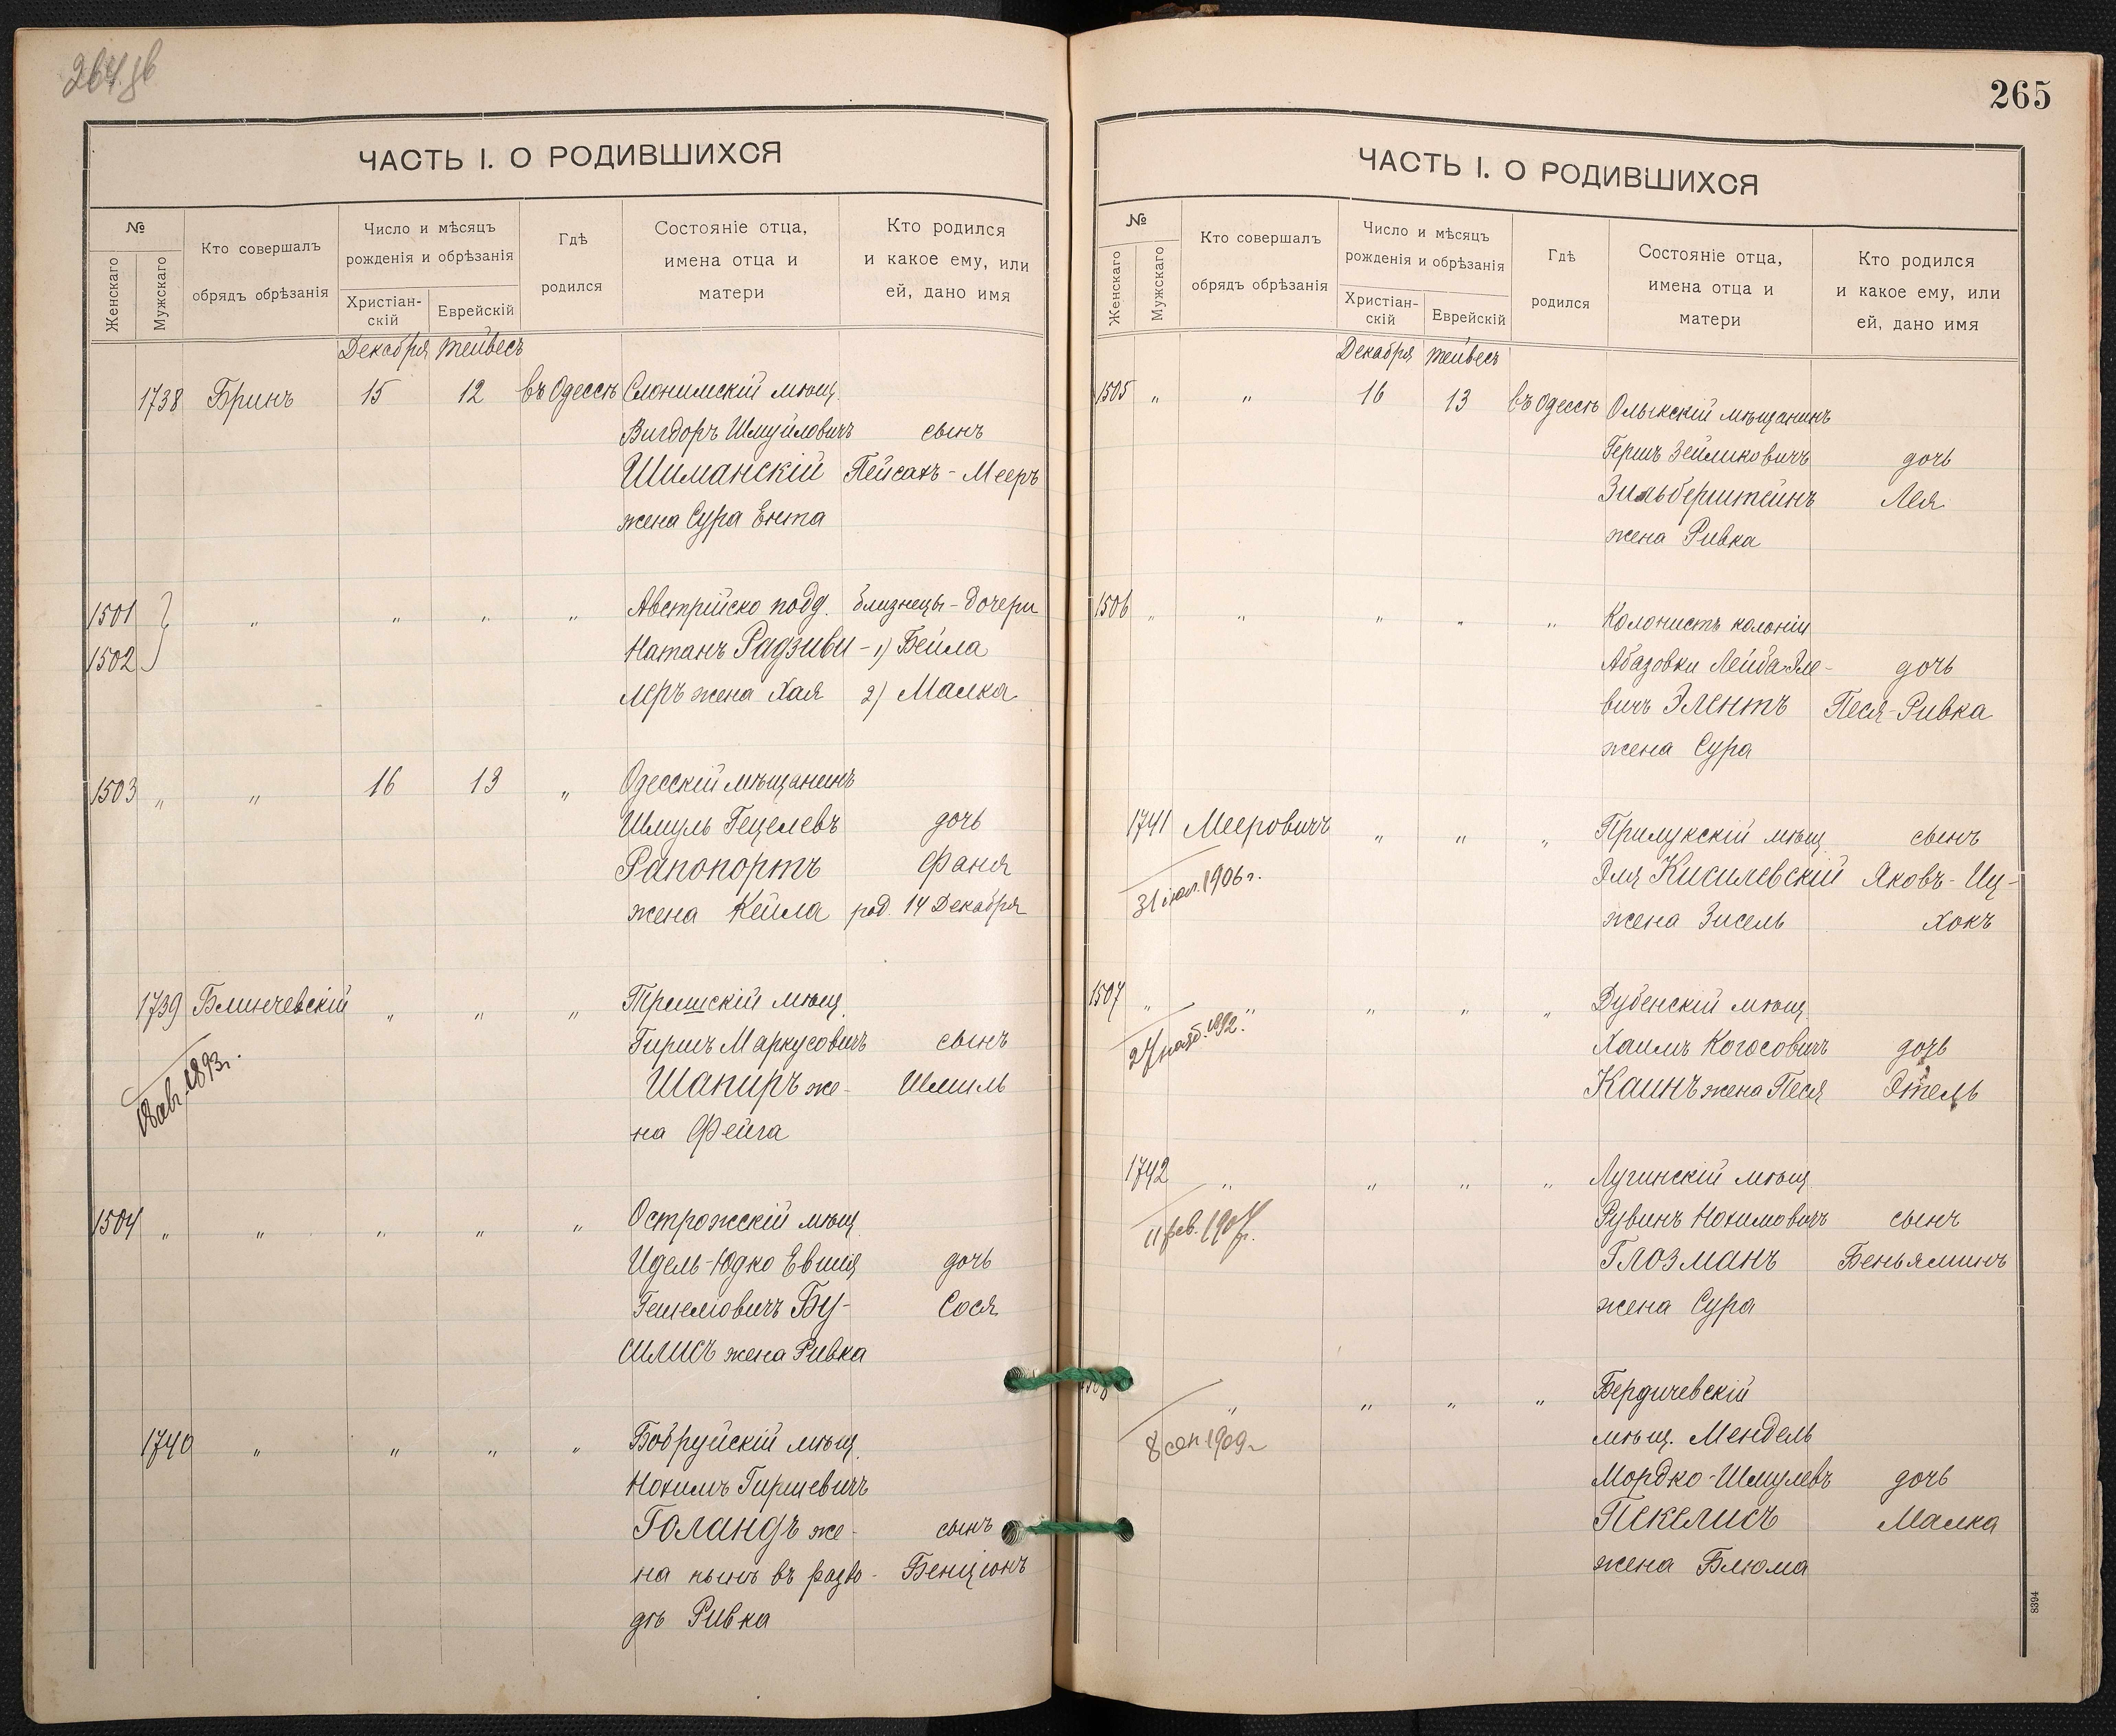 264 об
ЧАСТЬ I. О РОДИВШИХСЯ
№
Женскаго
Мужскаго
Кто совершалъ
обрядъ обрѣзанія
Число и мѣсяцъ
рожденія и обрѣзанія
Христіан-
скій
Еврейскій
Гдѣ
родился
Состояніе отца,
имена отца и
матери
Кто родился
и какое ему, или
ей, дано имя
Декабря Тейвесъ
1738 Бринъ 15 12 въ Одессѣ Слонимскій мѣщ.
Вигдоръ Шмуйловичъ сынъ
Шиманскій Пейсахъ-Мееръ
жена Сура Ента
1501 " " " " Австрійско подд. близнецы-дочери
1502 Натанъ Радзиви- 1) Бейла
леръ жена Хая 2) Малка
1503 " " 16 13 " Одесскій мѣщанинъ
Шмуль Гецелевъ дочь
Рапопортъ Фаня
жена Кейла род. 14 Декабря
1739 Блинчевскій " " " мѣщ.
Гиршъ Маркусовичъ сынъ
18 авг. 1893 г.
Шапиръ же- Шмиль
на Фейга
1504 " " " " " Острожскій мѣщ.
Идель-Юдко дочь
Гешелювичъ Бу- Сося
силисъ жена Ривка
1740 " " " " Бобруйскій мѣщ.
Нохимъ Гиршевичъ
Голандъ же- сынъ
на нынѣ въ разво- Бенціонъ
дѣ Ривка
265
ЧАСТЬ I. О РОДИВШИХСЯ
№
Женскаго
Мужскаго
Кто совершалъ
обрядъ обрѣзанія
Число и мѣсяцъ
рожденія и обрѣзанія
Христіан-
скій
Еврейскій
Гдѣ
родился
Состояніе отца,
имена отца и
матери
Кто родился
и какое ему, или
ей, дано имя
Декабря Тейвесъ
1505 " " 16 13 въ Одессѣ Олыкскій мѣщанинъ
Гершъ Зейликовичъ дочь
Зильберштейнъ Лея
жена Ривка
1506 " " " " " Колонистъ колоніи
Абазовки Лейба Эле- дочь
вичъ Элентъ Песя-Ривка
жена Сура
1741 Мееровичъ " " " Прилукскій мѣщ. сынъ
31 1906 г.
Эля Кисилевскій Яковъ-Иц-
жена Зисель хокъ
1507 " " " " " Дубенскій мѣщ.
27 нояб. 1892.
Хаимъ дочь
Каинъ жена Песя Этель
1742 " " " " Лугинскій мѣщ.
11 фев. 1907 г.
Рувинъ Нохимовичъ сынъ
Глозманъ Беньяминъ
жена Сура
1508 " " " " Бердичевскій
8 сен. 1909 г.
мѣщ. Мендель
Мордко-Шмулевъ дочь
Пекелисъ Малка
жена Блюма
8394